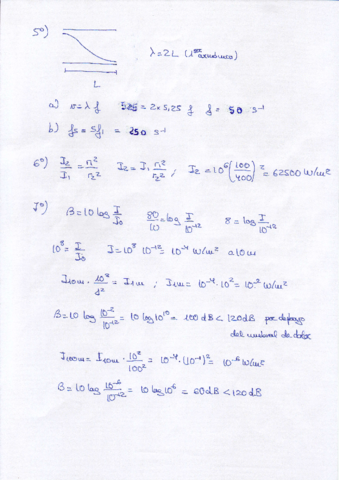 5º)
λ = 2L (1er armónico)
L
a) v = λ f 525 = 2 × 5,25 f f = 50 s⁻¹
b) f₅ = 5f₁ = 250 s⁻¹
6º) I₂/I₁ = r₁²/r₂² I₂ = I₁ r₁²/r₂² ; I₂ = 10⁶ (100/400)² = 62500 W/m²
7º) B = 10 log I/I₀ 80/10 = log I/10⁻¹² 8 = log I/10⁻¹²
10⁸ = I/I₀ I = 10⁸ 10⁻¹² = 10⁻⁴ W/m² a 10m
I₁₀m · 10²/1² = I₁m ; I₁m = 10⁻⁴ · 10² = 10⁻² W/m²
B = 10 log 10⁻²/10⁻¹² = 10 log 10¹⁰ = 100 dB < 120 dB por debajo
del umbral de dolor
I₁₀₀m = I₁₀m · 10²/100² = 10⁻⁴ · (10⁻¹)² = 10⁻⁶ W/m²
B = 10 log 10⁻⁶/10⁻¹² = 10 log 10⁶ = 60 dB < 120 dB